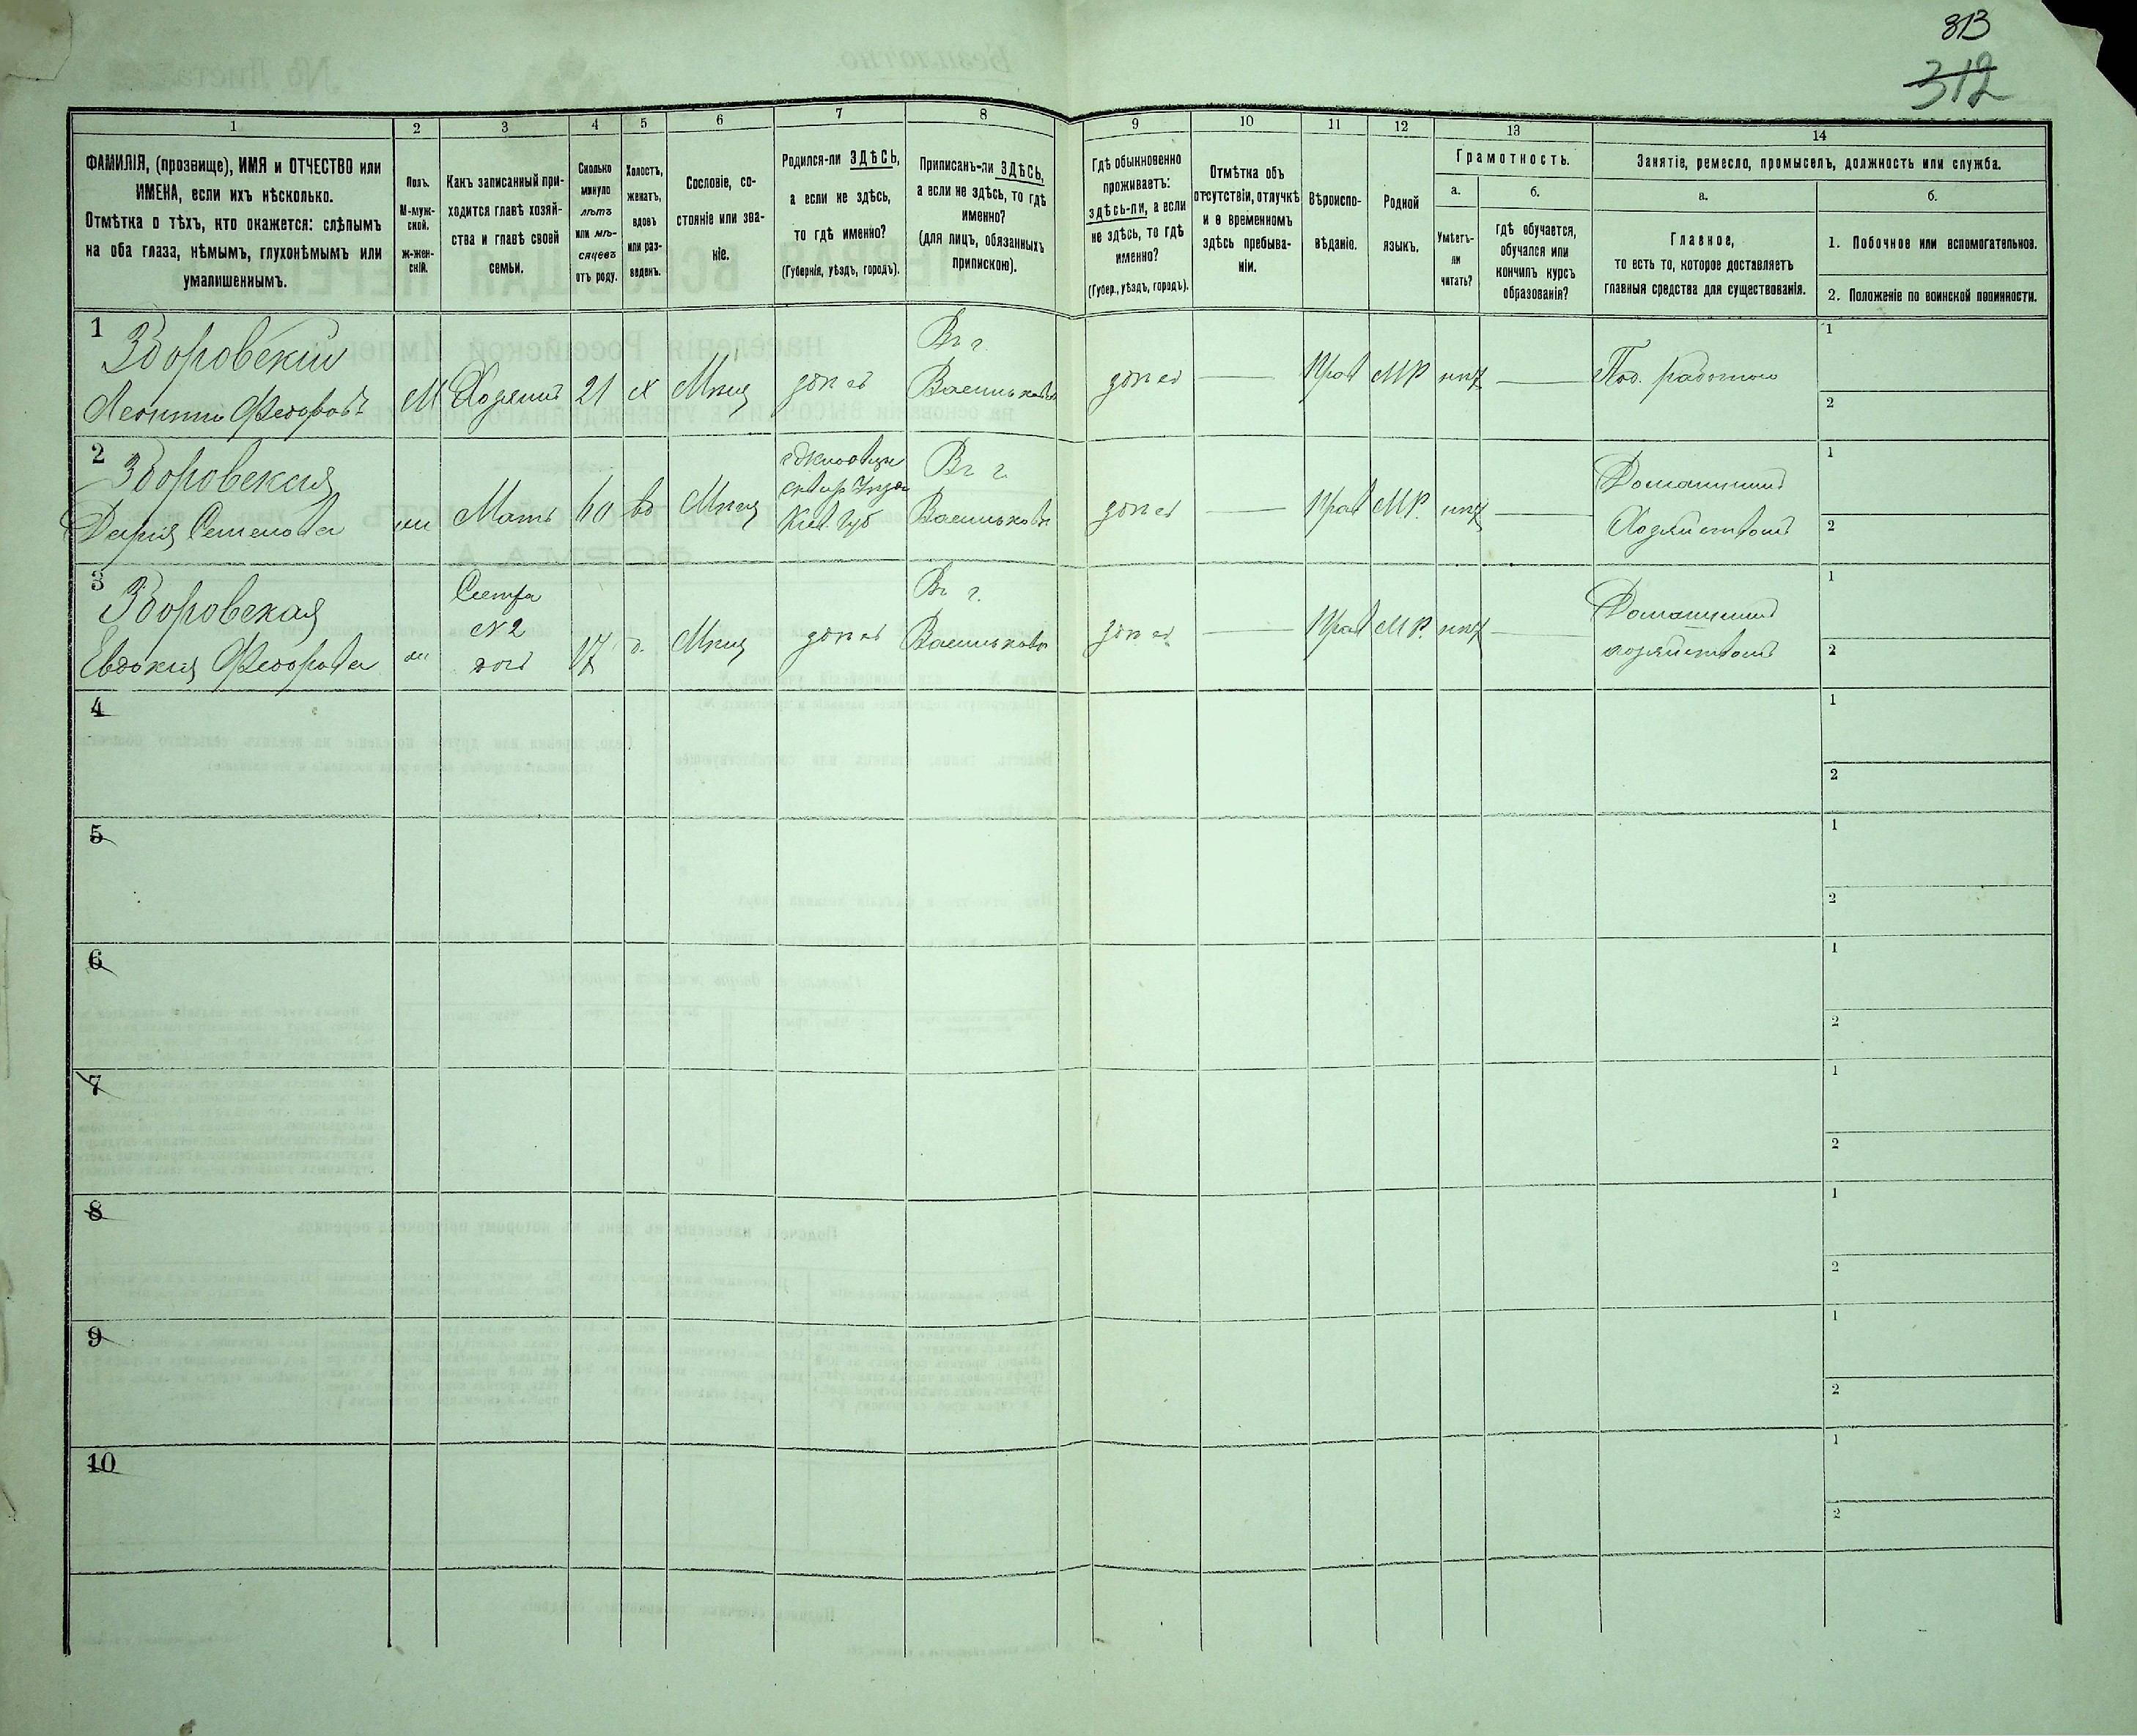 313
312
1
2
3
4
5
6
7
8
9
10
11
12
13
14
ФАМИЛІЯ, (прозвище), ИМЯ и ОТЧЕСТВО или
ИМЕНА, если ихъ нѣсколько.
Отмѣтка о тѣхъ, кто окажется: слѣпымъ
на оба глаза, нѣмымъ, глухонѣмымъ или
умалишеннымъ.
Полъ.
М-муж-
ской.
ж-жен-
скій.
Какъ записанный при-
ходится главѣ хозяй-
ства и главѣ своей
семьи.
Сколько
минуло
лѣтъ
или мѣ-
сяцевъ
отъ роду.
Холостъ,
женатъ,
вдовъ
или раз-
веденъ.
Сословіе, со-
стояніе или зва-
ніе.
Родился-ли ЗДѢСЬ,
а если не здѣсь,
то гдѣ именно?
(Губернія, уѣздъ, городъ).
Приписанъ-ли ЗДѢСЬ,
а если не здѣсь, то гдѣ
именно?
(для лицъ, обязанныхъ
припискою).
Гдѣ обыкновенно
проживаетъ:
здѣсь-ли, а если
не здѣсь, то гдѣ
именно?
(Губер., уѣздъ, городъ).
Отмѣтка объ
отсутствіи, отлучкѣ
и о временномъ
здѣсь пребыва-
ніи.
Вѣроиспо-
вѣданіе.
Родной
языкъ.
Грамотность.
а.
Умѣетъ-
ли
читать?
б.
гдѣ обучается,
обучался или
кончилъ курсъ
образованія?
Занятіе, ремесло, промыселъ, должность или служба.
а.
Главное,
то есть то, которое доставляетъ
главныя средства для существованія.
б.
1. Побочное или вспомогательное.
2. Положеніе по воинской повинности.
1
Здоровский
Федоровъ
М
Хозяинъ
21
х
Мѣщ
здѣсь
Въ г.
Васильковъ
здѣсь
Прав
МР
нѣт
Под. работою
1
2
2
Здоровская
Дарія Семенова
Мать
60
вд
Мѣщ
Кіев. губ
Въ г.
Васильковъ
здѣсь
Прав
МР.
нѣт
Домашнимъ
Хозяйствомъ
1
2
3
Здоровская
Евдокия Федорова
Сестра
№2
дочь
17
д.
Мѣщ
здѣсь
Въ г.
Васильковъ
здѣсь
Прав
МР.
нѣт
Домашнимъ
хозяйствомъ
1
2
4
1
2
5
1
2
6
1
2
7
1
2
8
1
2
9
1
2
10
1
2